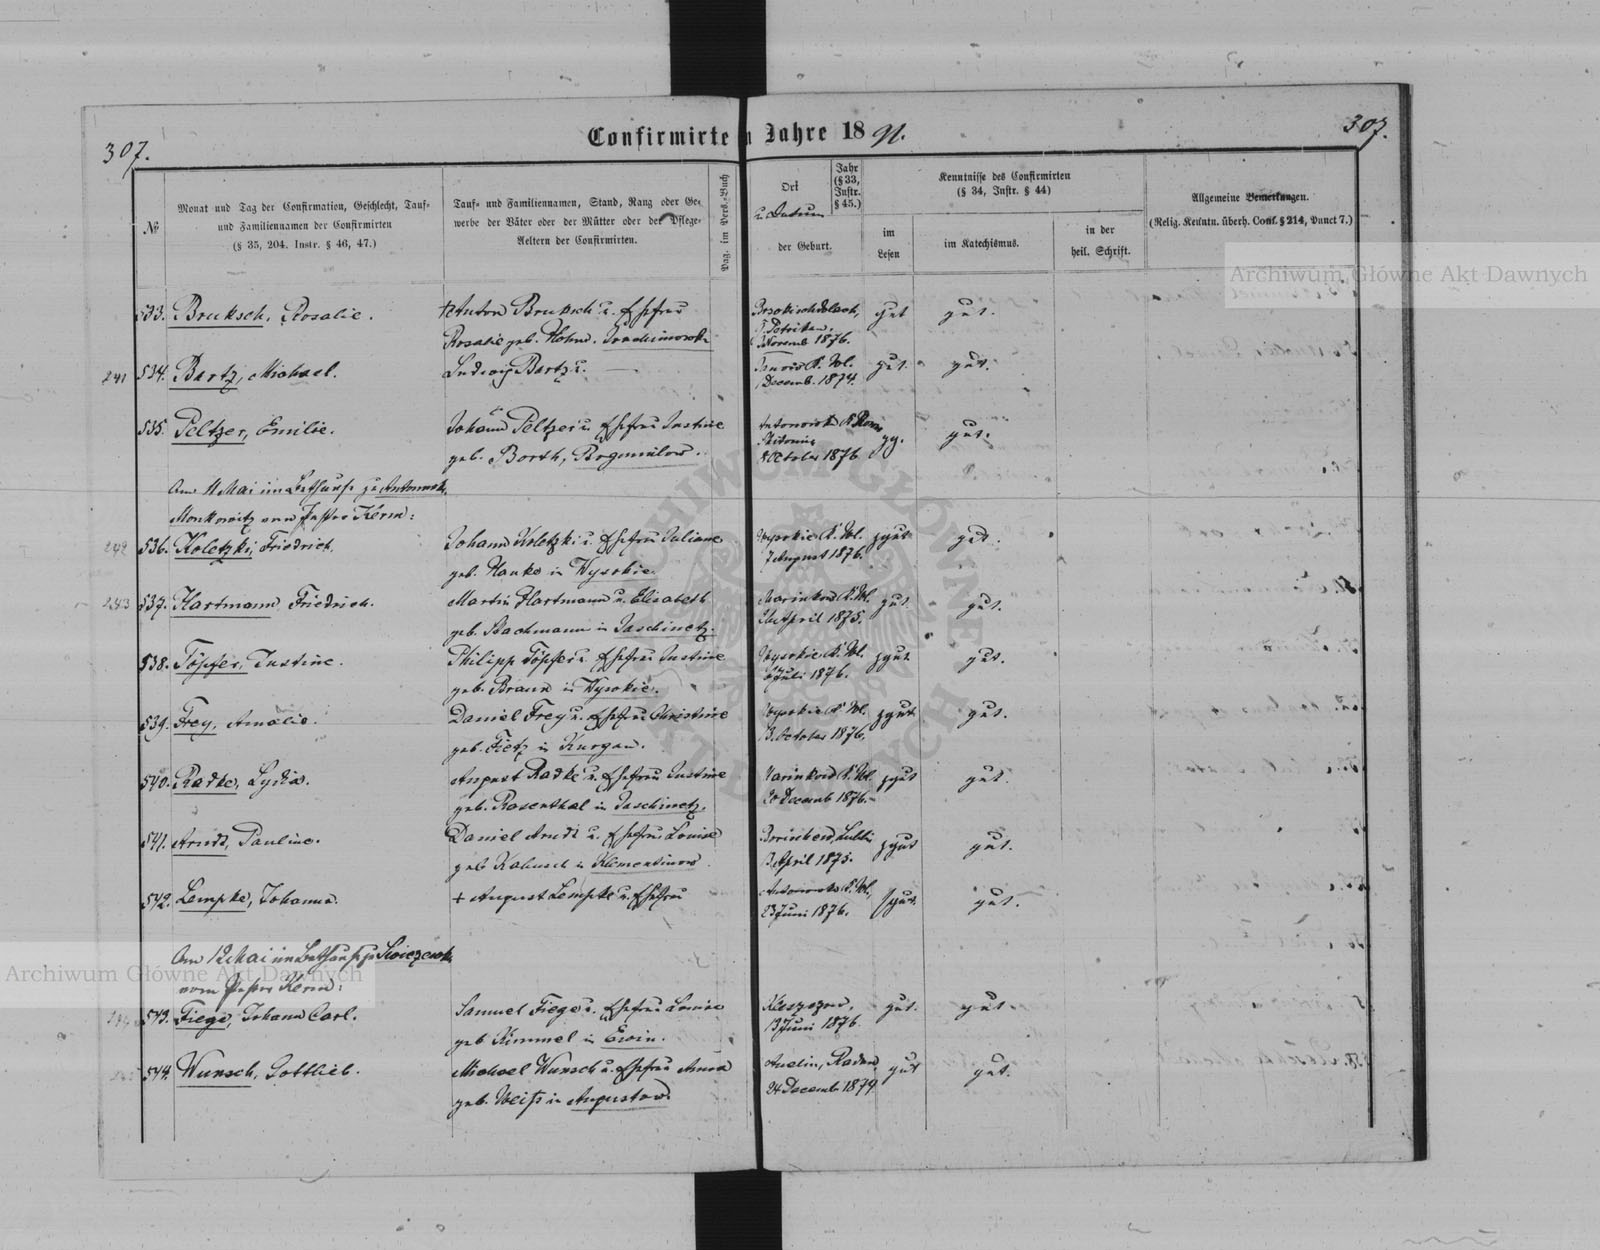 307.
Confirmirte
Jahre 18 91.
307.
№
Monat und Tag der Confirmation, Geschlecht, Tauf-
und Familiennamen der Confirmirten
(§ 35, 204. Instr. § 46, 47.)
Tauf- und Familiennamen, Stand, Rang oder Ge-
werbe der Väter oder der Mütter oder der Pflege-
Aeltern der Confirmirten.
Pag. im Pers.-Buch
Ort
u. Datum
der Geburt.
Jahr
(§ 33,
Instr.
§ 45.)
Kenntnisse des Confirmirten
(§ 34, Instr. § 44)
im
Lesen
im Katechismus.
in der
heil. Schrift.
Allgemeine Bemerkungen.
(Relig. Kenntn. überh. Conf. § 214, Punct 7.)
Archiwum Główne Akt Dawnych
533. Bruksch, Rosalie.
† Anton Bruksch u. Ehefrau
Rosalie geb. Hohn.
Petrikau,
Novemb 1876.
gut
gut.
241
534. Bartz, Michael.
Ludwig Bartz u. —
K. Wol.
Decemb. 1874.
gut.
gut.
535. Peltzer, Emilie.
Johann Peltzer u. Ehefrau Justine
geb. Barth, Bogumilow.
8 October 1876
gut.
Am 11 Mai im Bethause zu Antonowka
vom Pastor Kerm:
242
536. Koletzki, Friedrich.
Johann Koletzki u. Ehefrau Juliane
geb. Hanke in Wysokie.
Wysokie K. Wol.
7 August 1876.
gut
gut.
243
537. Hartmann Friedrich.
Martin Hartmann u. Elisabeth
geb. Bachmann in Jaschinetz.
Marinkow K. Wol.
April 1875.
gut
gut.
538. Töpfer, Justine.
Philipp Töpfer u. Ehefrau Justine
geb. Braun in Wysokie.
Wysokie K. Wol.
6 Juli 1876.
gut.
gut.
539. Frey, Amalie.
Daniel Frey u. Ehefrau Christine
geb. Fietz in Kurgan.
Wysokie K. Wol.
13. October 1876.
gut
gut.
540. Radke, Lydia.
August Radke u. Ehefrau Justine
geb. Rosenthal in Jaschinetz.
Marinkow K. Wol.
20 Decemb 1876.
gut
gut.
541. Arndt, Pauline.
Daniel Arndt u. Ehefrau Louise
geb. Kabusch in Klementinow
April 1875.
gut
gut.
542. Lempke, Johanna.
† August Lempke u. Ehefrau
Antonowka K. Wol,
23 Juni 1876.
gut.
gut.
Am 12 Mai im Bethause zu
vom Pastor Kerm:
543. Fiege, Johann Carl.
Samuel Fiege u. Ehefrau Louise
geb. Kimmel in
13 Juni 1876
gut.
gut.
544. Wunsch, Gottlieb.
Michael Wunsch u. Ehefrau Anna
geb. Weiß in Augustow.
Radom
24 Decemb 1874
gut
gut.
Archiwum Główne Akt Dawnych
ARCHIWUM GŁÓWNE AKT DAWNYCH